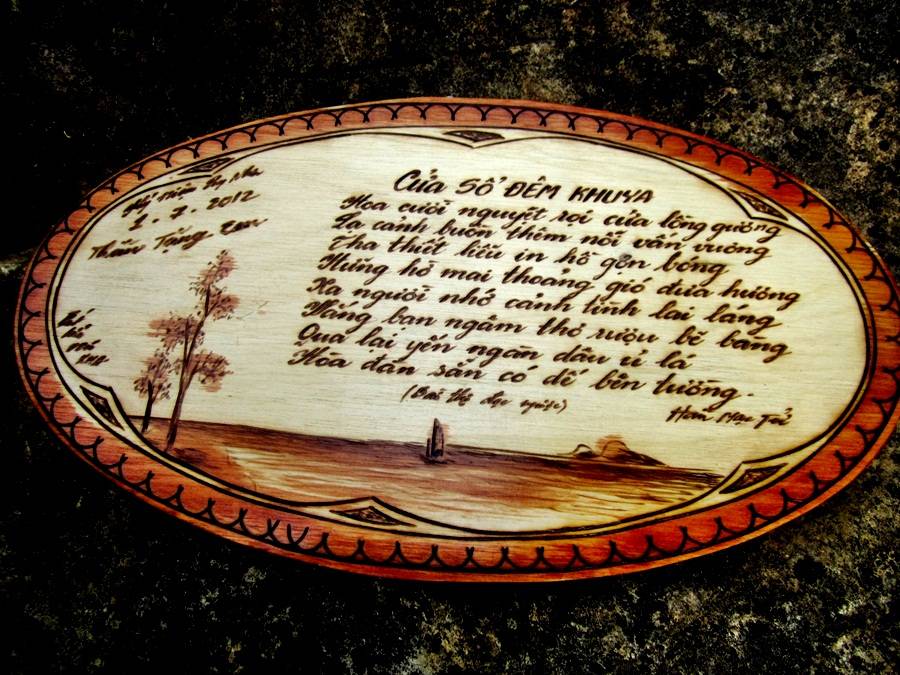 2-7-2012
Thân Tặng
CỬA SỔ ĐÊM KHUYA
Hoa cười nguyệt rọi cửa lồng gương
Lạ cảnh buồn thêm nỗi vấn vương
Tha thiết liễu in hồ gợn bóng
Hững hờ mai thoảng gió đưa hương
Xa người nhớ cảnh tình lai láng
Vắng bạn ngâm thơ rượu bẽ bàng
Qua lại yến ngàn dâu ủ lá
Hòa đàn sẵn có dế bên tường.
Hàn Mạc Tử